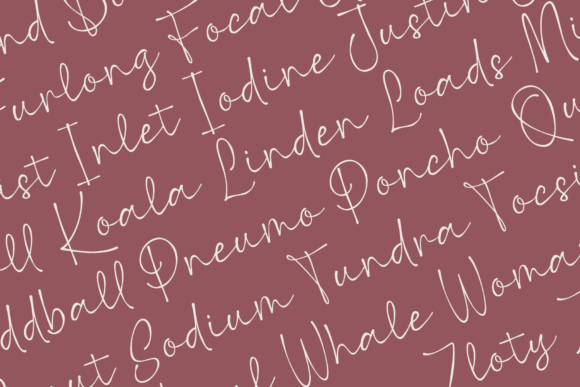 Furlong Focal
Inlet Iodine Justin
Koala Linden Loads
ddball Pneumo Poncho
Sodium Tundra Tocsi
Whale Woma
Zloty